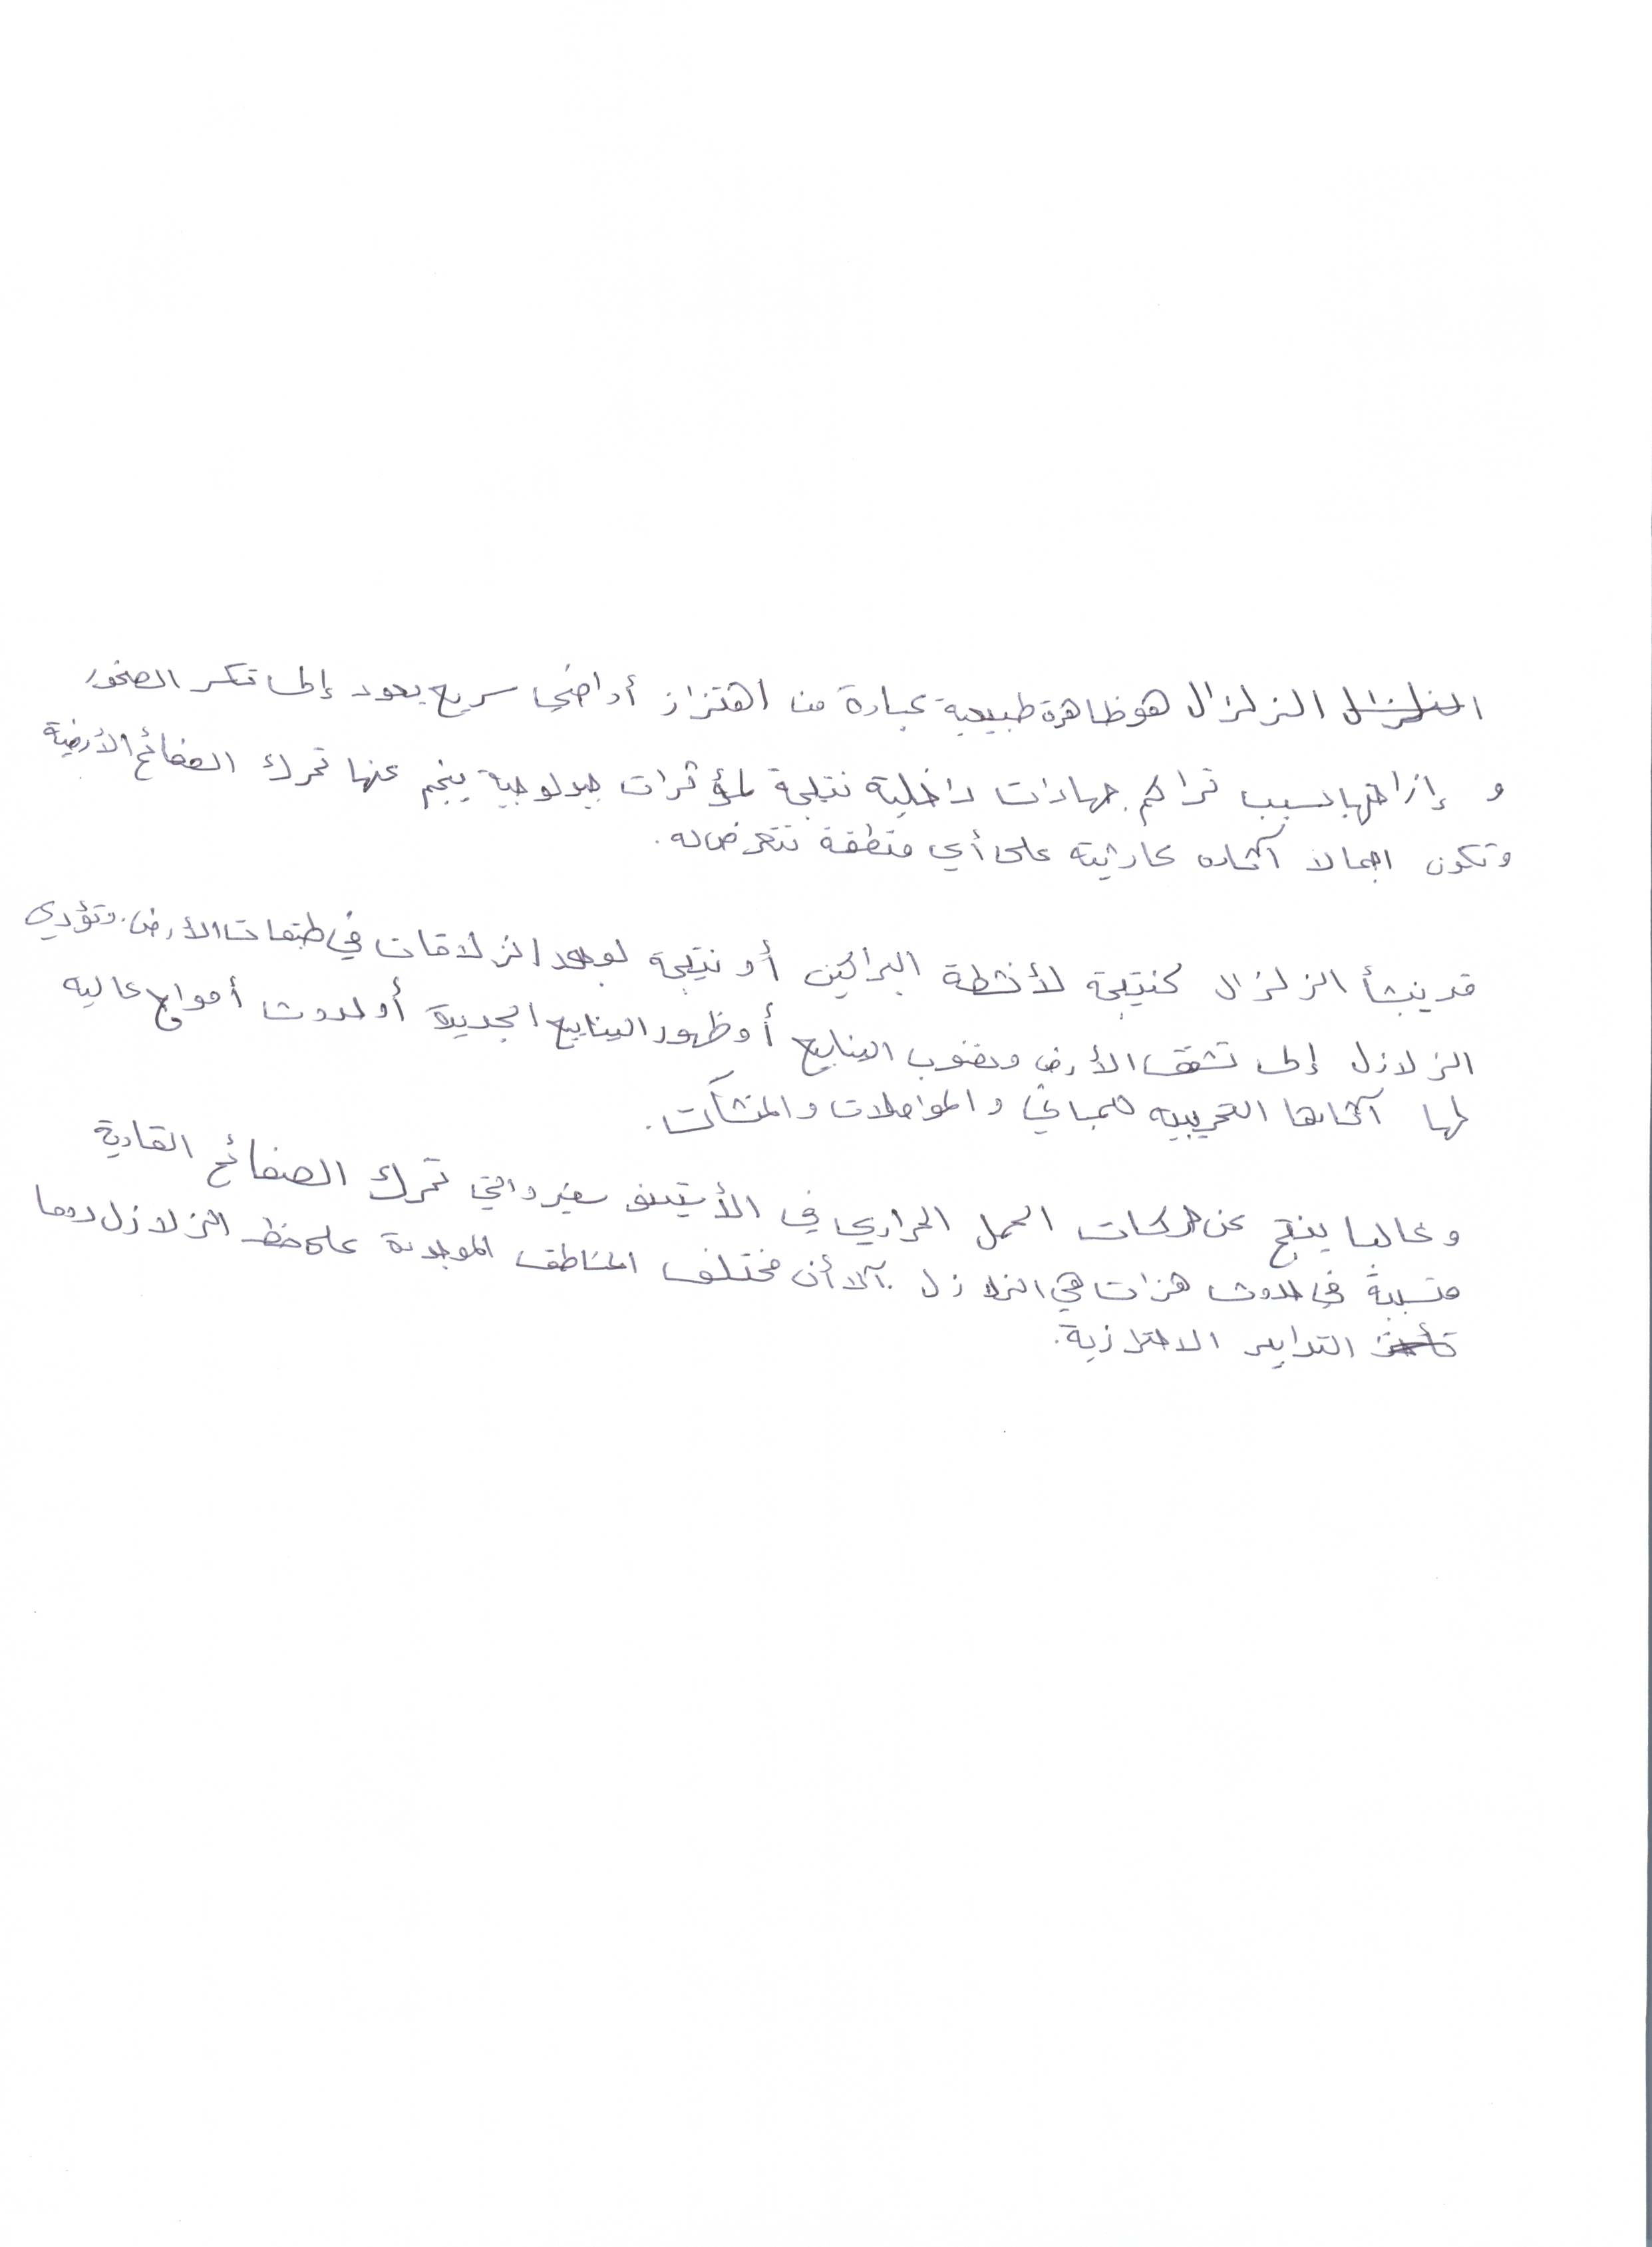 الزلزال هو ظاهرة طبيعية عبارة من اهتزاز أو اضي سريع يعود إلى تكسر الصخور
و إزاحتها بسبب تراكم جهادات داخلية نتيجة لمؤثرات جيولوجية ينجم عنها تحرك الصفائح الأرضية
وتكون اجمالا آثاره كارثية على أي منطقة تتعرض له.
قد ينشأ الزلزال كنتيجة لأنشطة البراكين أو نتيجة لوجود انزلاقات في طبقات الأرض. وتؤدي
الزلازل إلى تشقق الأرض ونضوب الينابيع أو ظهور الينابيع الجديدة أو حدوث أمواج عاليه
لها آثارها التخريبيه للمباني والمواصلات والمنشآت.
وغالبا ينتج عن حركات الحمل الحراري في الأ سفير والتي تحرك الصفائح القارية
متسببة في حدوث هزات هي الزلازل. آلا أن مختلف المناطق الموجودة على خط الزلازل دوما
التدابير الاحترازية.